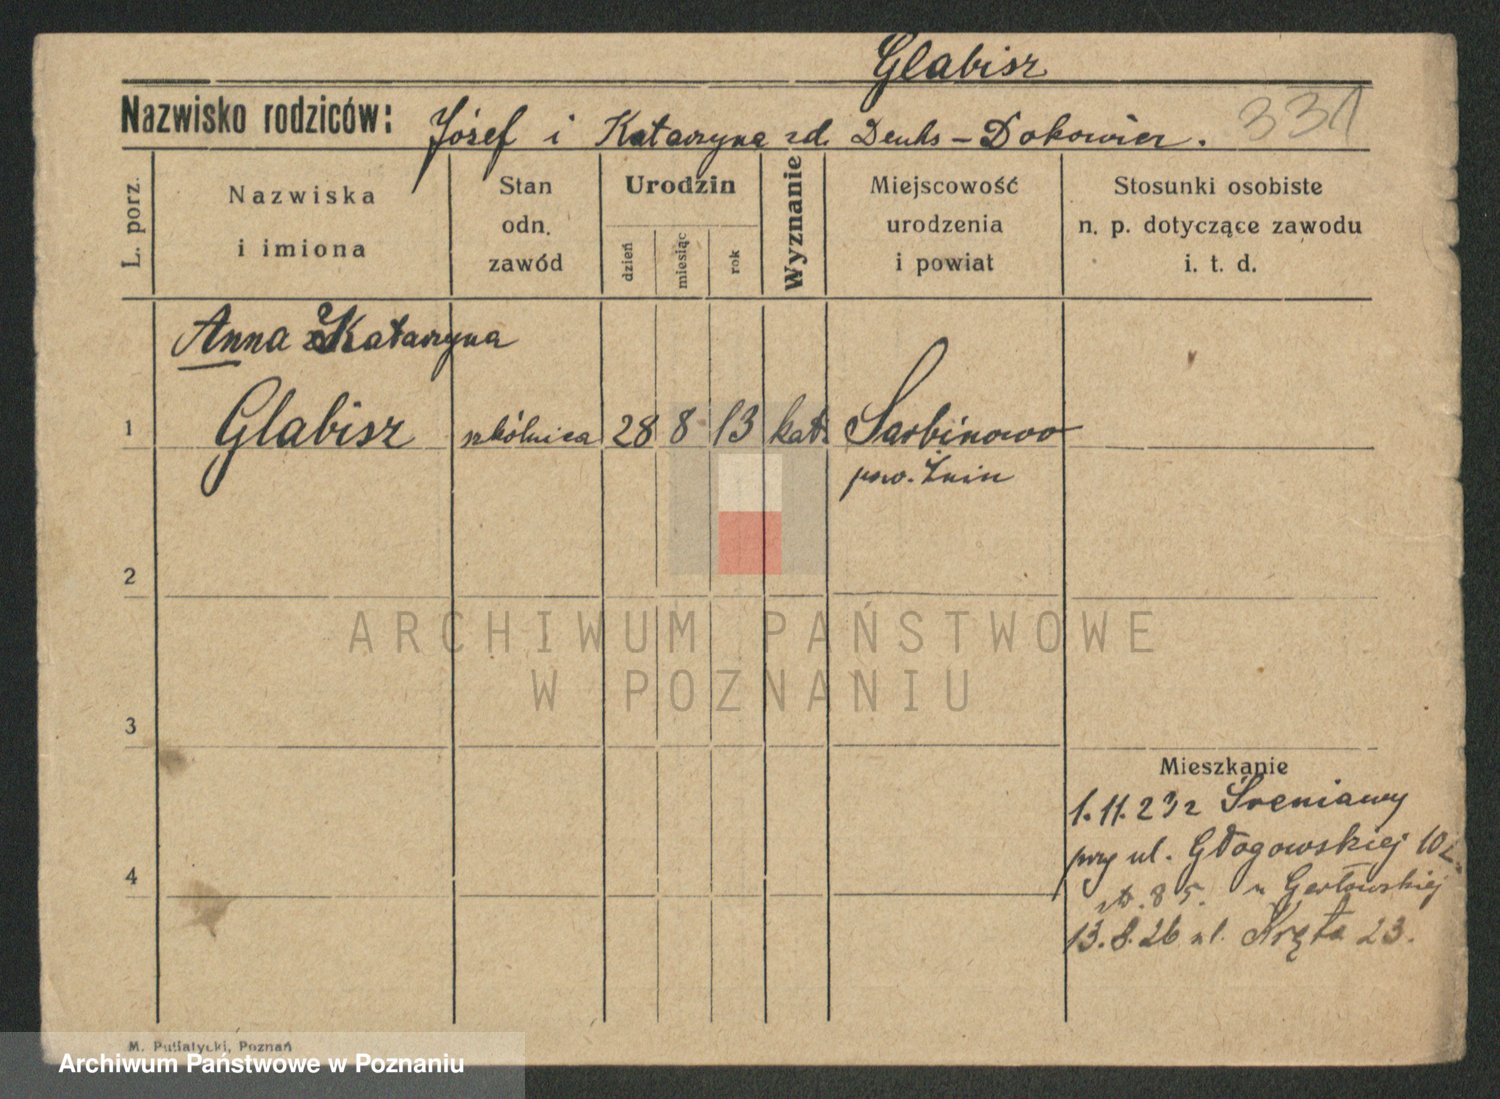 Glabisz
Nazwisko rodziców: Józef i Katarzyna zd. 331
L. porz.
Nazwiska i imiona
Stan odn. zawód
Urodzin
dzień
miesiąc
rok
Wyznanie
Miejscowość urodzenia i powiat
Stosunki osobiste n. p. dotyczące zawodu i. t. d.
Anna Katarzyna
1 Glabisz szkólnica 28 8 13 kat. Sarbinowo
pow. Żnin
2
ARCHIWUM PAŃSTWOWE
W POZNANIU
3
Mieszkanie
1.11.23 z Śreniawy
przy ul. Głogowskiej
4
85.
13.8.26 ul. Kręta 23.
M. Putiatycki, Poznań
Archiwum Państwowe w Poznaniu